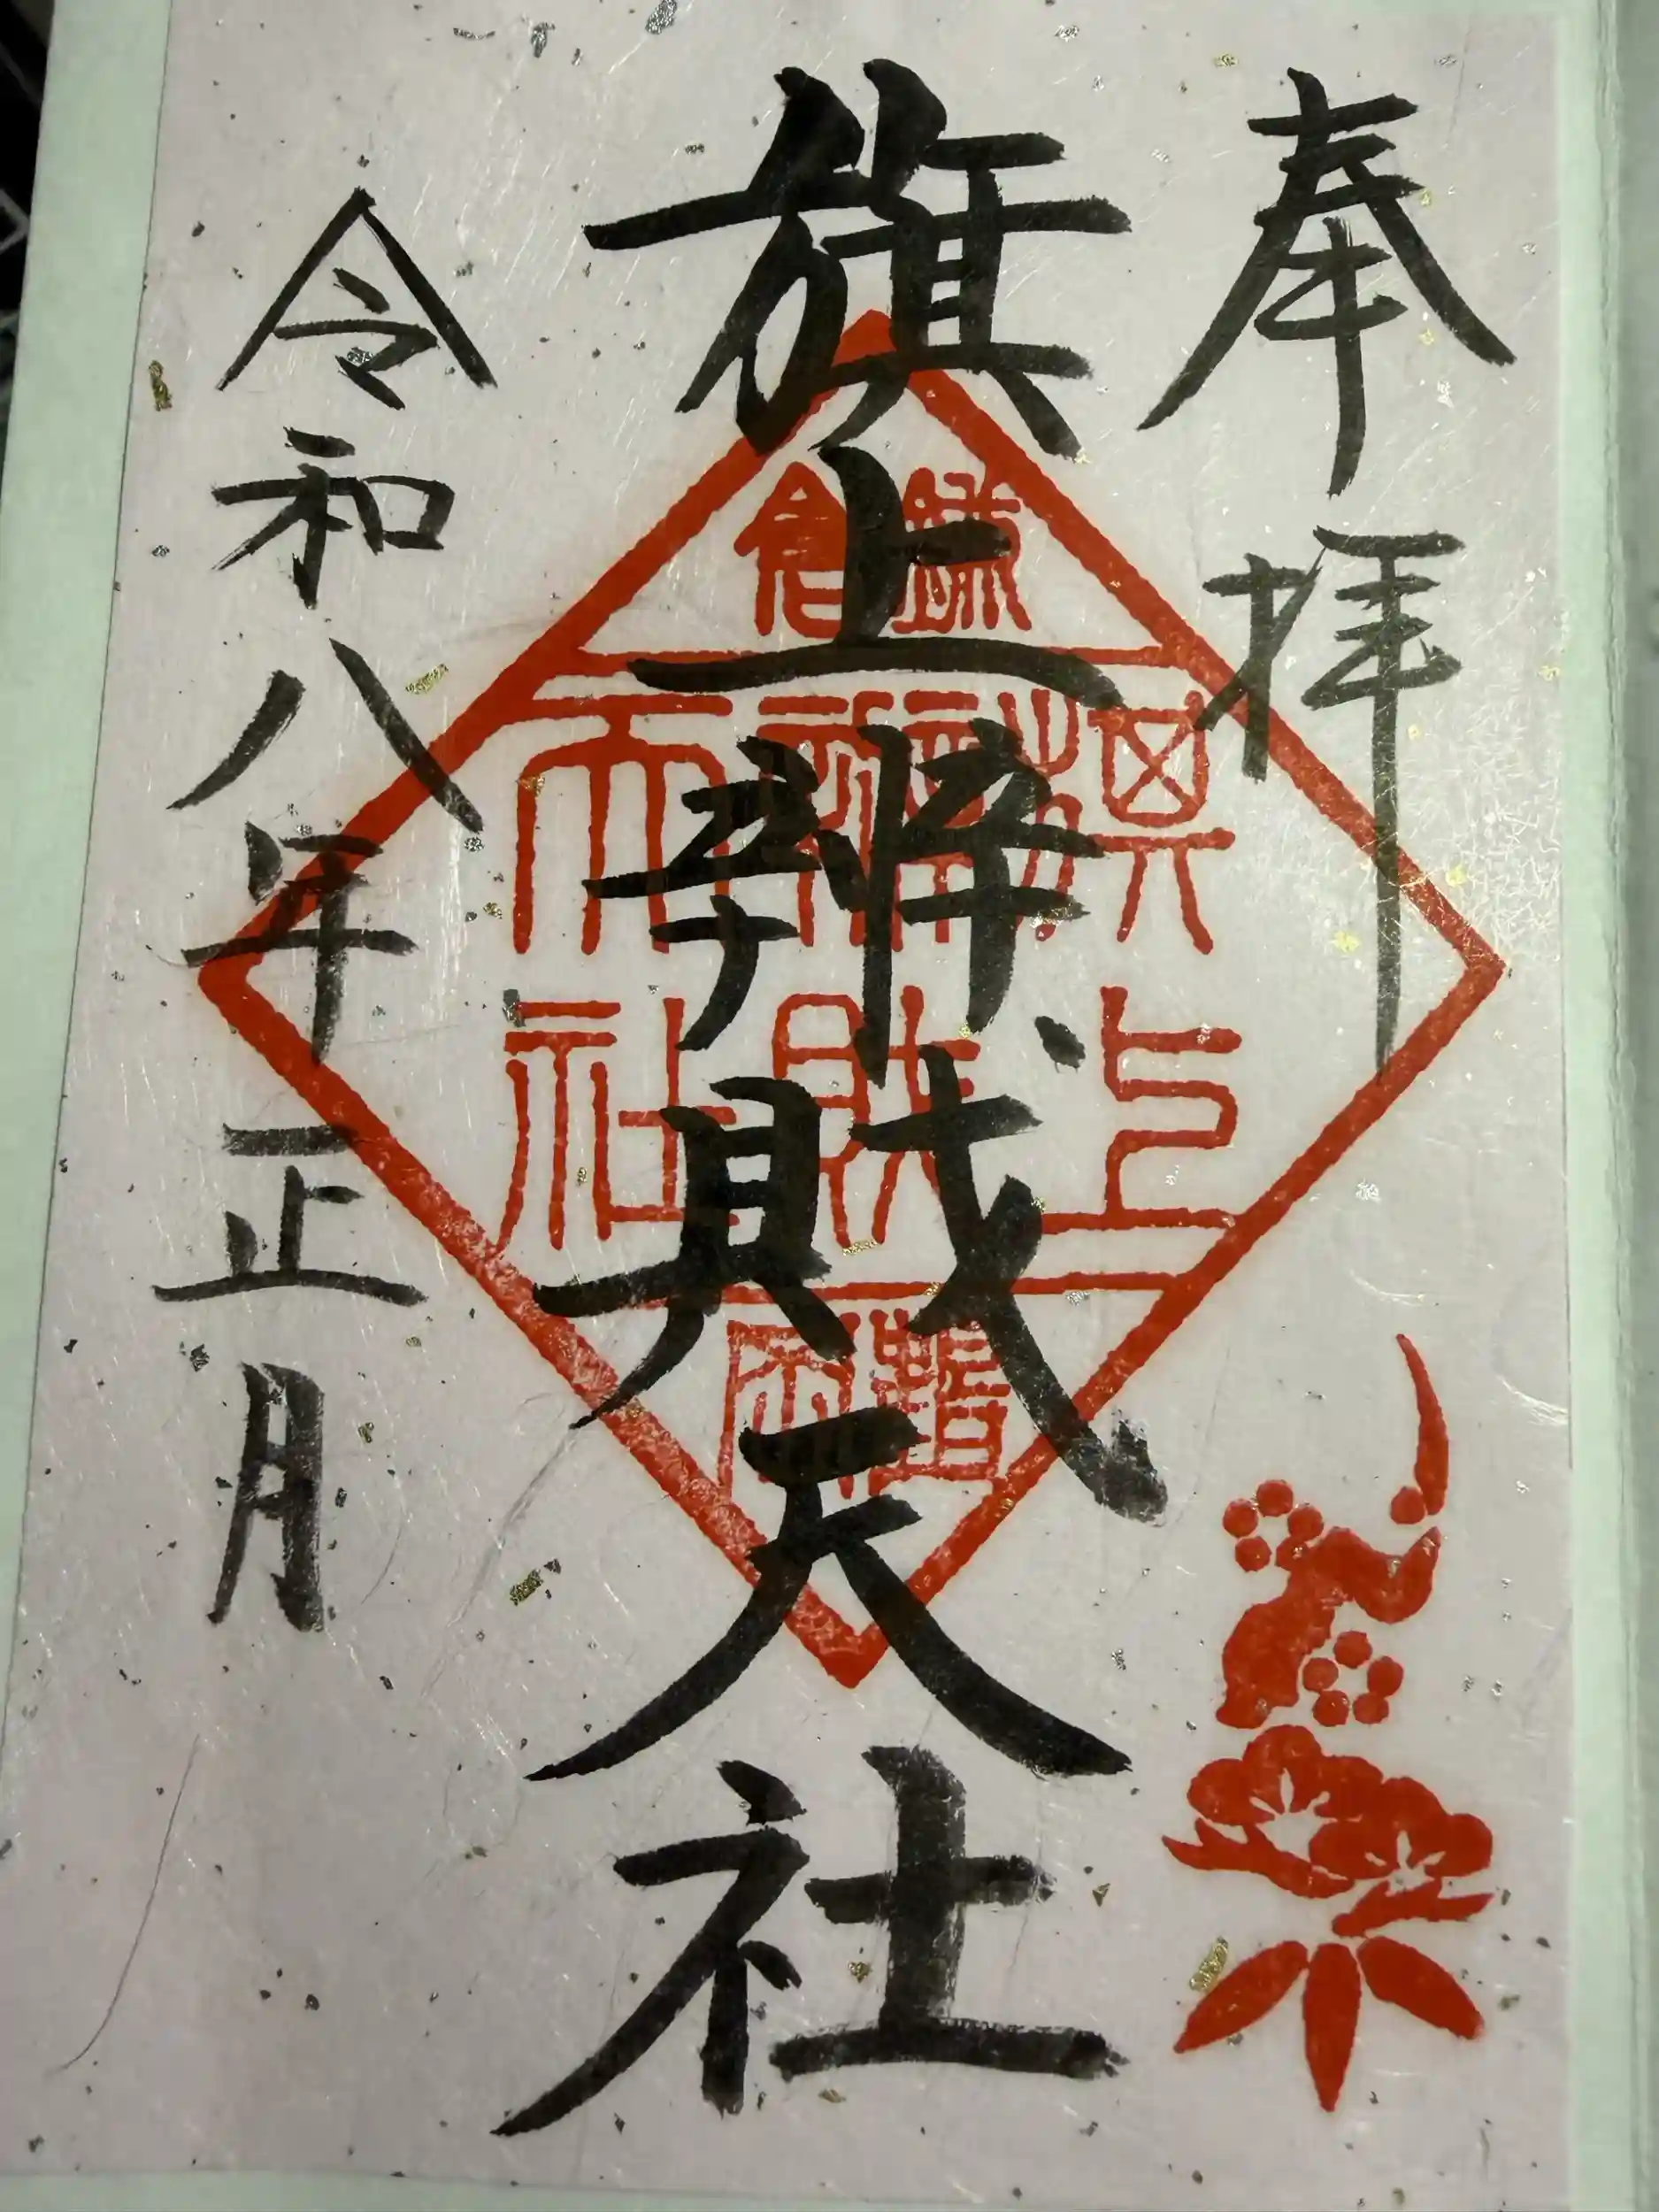 奉拝
旗上辨財天社
令和八年正月
鎌倉
旗上
辨財
天社